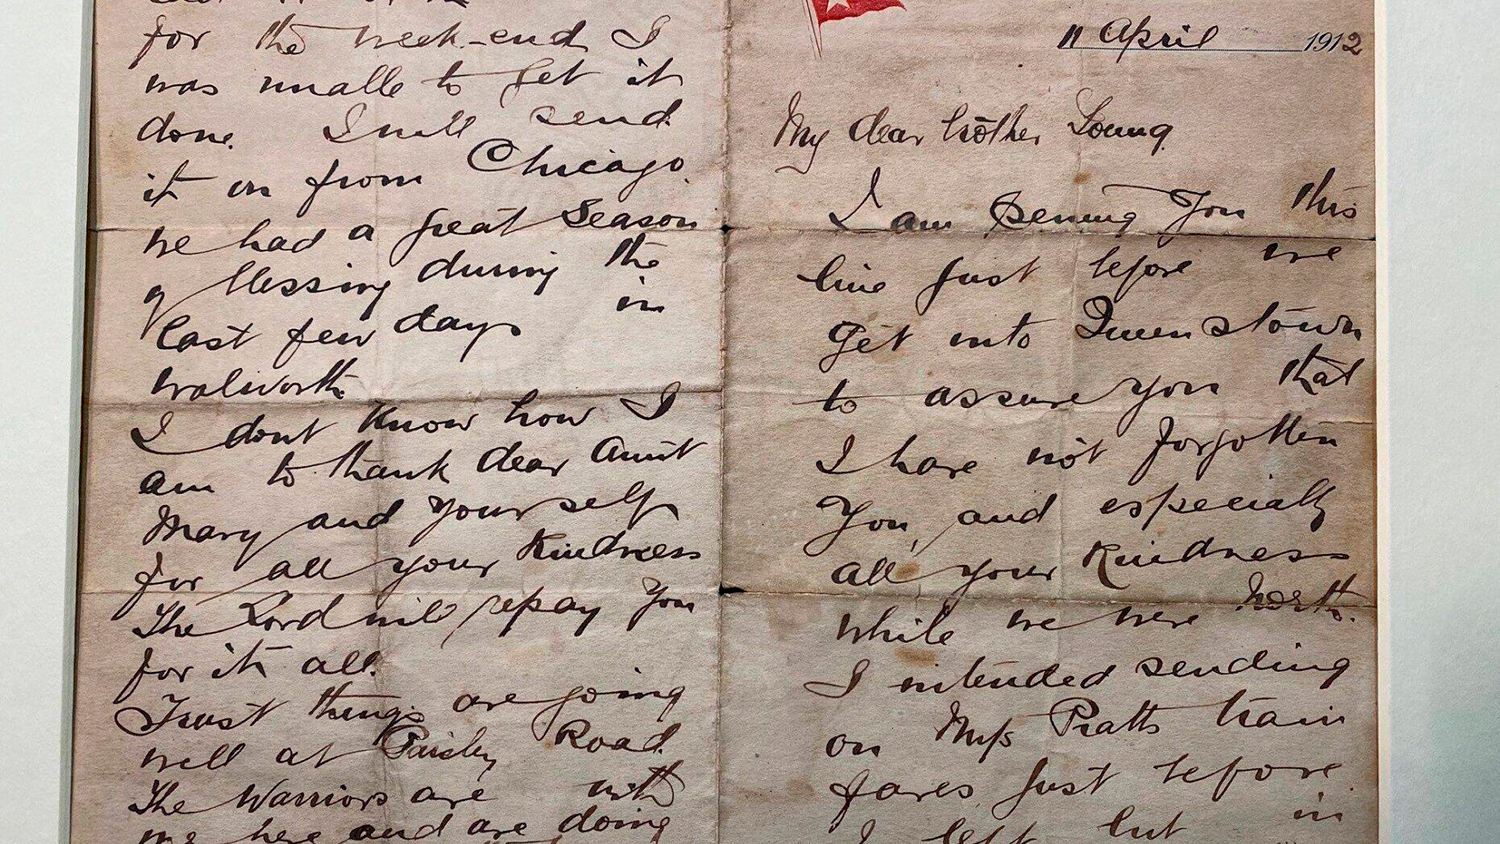 11 April 1912
My dear brother Young.
I am penning you this
line just before we
get into Queenstown
to assure you that
I have not forgotten
you, and especially
all your kindness
while we were North.
I intended sending
on Miss Pratt's train
fares just before
I left but in
for the week-end I
was unable to get it
done. I will send
it on from Chicago.
We had a great season
of blessing during the
last few days in
Walworth.
I dont know how I
am to thank dear Aunt
Mary and yourself
for all your kindness
The Lord will repay you
for it all.
Trust things are going
well at Paisley Road.
The Warriors are with
me here and are doing